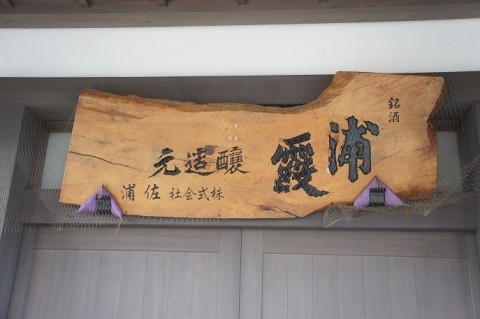 銘酒
浦霞
釀造元
株式会社 佐浦